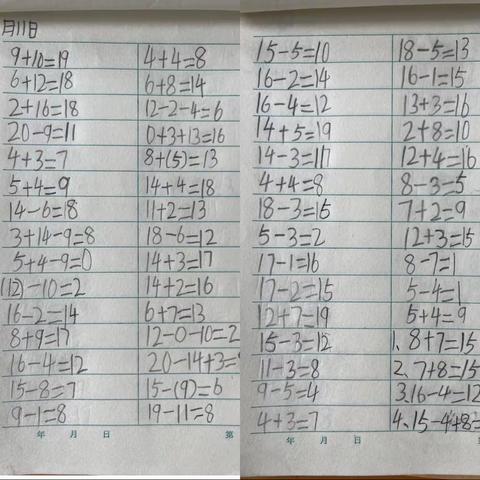 月11日
9+10=19
6+12=18
2+16=18
20-9=11
4+3=7
5+4=9
14-6=18
3+14-9=8
5+4-9=0
(12)-10=2
16-2=14
8+9=17
16-4=12
15-8=7
9-1=8
4+4=8
6+8=14
12-2-4=6
0+3+13=16
8+(5)=13
14+4=18
11+2=13
18-6=12
14+3=17
14+2=16
6+7=13
12-0-10=2
20-14+3=
15-(9)=6
19-11=8
年 月 日 第
15-5=10
16-2=14
16-4=12
14+5=19
14-3=11
4+4=8
18-3=15
5-3=2
17-1=16
17-2=15
12+7=19
15-3=12
11-3=8
9-5=4
4+3=7
18-5=13
16-1=15
13+3=16
2+8=10
12+4=16
8-3=5
7+2=9
12+3=15
8-7=1
5-4=1
5+4=9
1、8+7=15
2、7+8=15
3.16-4=12
4、15-4+8=
年 月 日